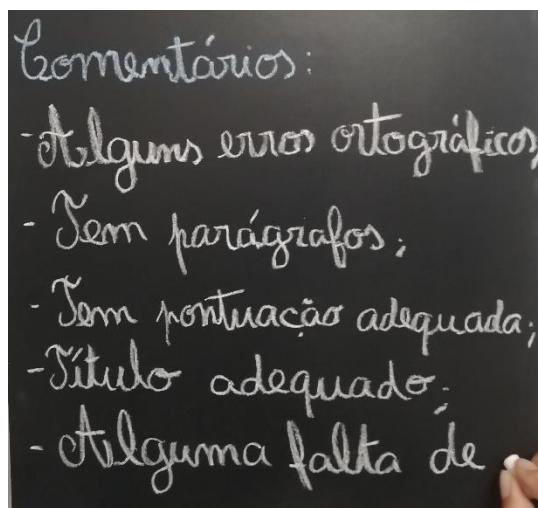 Comentários:
- Alguns erros ortográficos;
- Tem parágrafos;
- Tem pontuação adequada;
- Título adequado;
- Alguma falta de